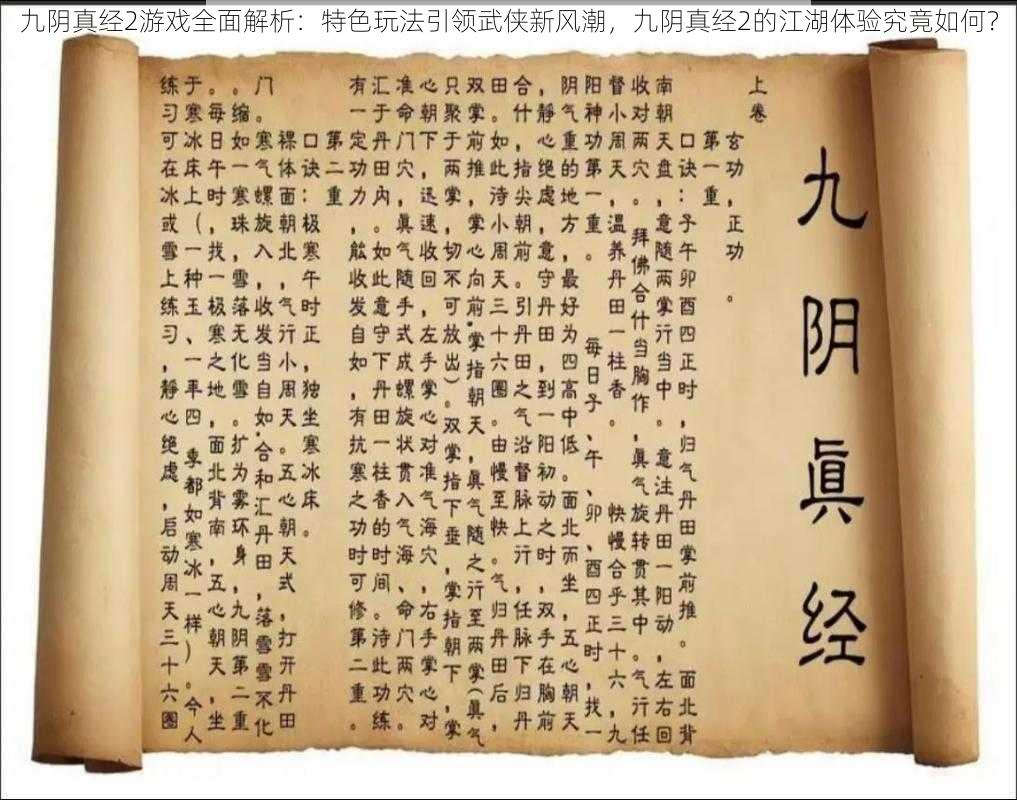 九阴真经2游戏全面解析：特色玩法引领武侠新风潮，九阴真经2的江湖体验究竟如何？
九阴眞经
上卷
玄功，正功。
第一重，
口诀：子午卯酉四正时，归气丹田掌前推。面北背
南朝天盘，意随两掌行当中。意注丹田一阳动，左右回
收对两穴。，拜佛合什当胸作，眞气旋转贯其中。气行任
督小周天，温养丹田一柱香。快慢合乎三十六，九
阳神功第一重。每日子、午、卯、酉四正时，找一
阴气重的地方，最好为四高中低。面北而坐，五心朝天
，静心绝虑，意守丹田，到一阳初动之时，双手在胸前
合什，指尖朝前。引丹田之气沿督脉上行，任脉下归丹
田。如此，待小周天三十六圈。由慢至快。气归丹田后，
双掌前推，掌心向前，掌指朝天，眞气随之行至两掌(眞气
只聚于两掌，切不可放出)。双掌指下垂，掌指朝下，掌
心朝下，迅速收回，左手掌心对准气海穴，右手掌心对
准命门穴，眞气随手式成螺旋状贯入气海、命门两穴。
汇于丹田内。如此意守下丹田一柱香的时间。待此功练
有一定功力，舷收发自如，有抗寒之功时可修第二重。
第二重
口诀：极寒午时正，独坐寒冰床。
裸体面朝北，气行小周天。五心朝天式，打开丹田
门。寒气螺旋入，收发当自如。合和汇丹田，落雪雪不化
。缩如一寒珠，雪落无化雪。扩为雾环身，九阴第二重
。每日午时，找一极寒之地，面北背南，五心朝天，坐
于寒冰床上(一种玉、一年四季都如寒冰一样)。今人
练习可在冰或雪上练习，静心绝虑，启动周天三十六圈